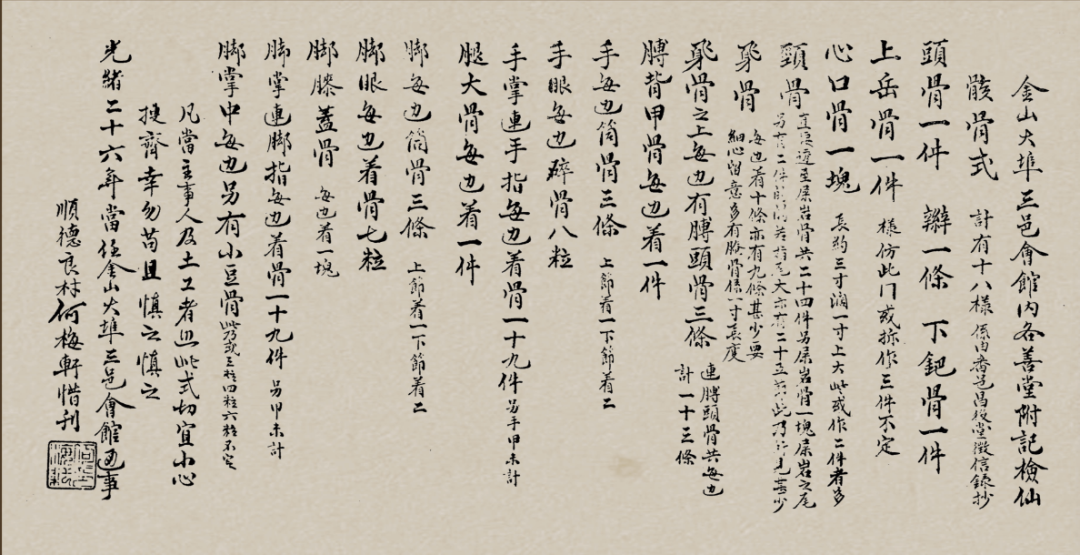 金山大埠三邑會館內各善堂附記檢仙
骸骨式 計有十八樣 係由番邑昌後堂徵信錄抄
頭骨一件 辮一條 下鈀骨一件
上岳骨一件 樣仿此门或拆作三件不定
心口骨一塊 長約三寸濶一寸上大此或作二件者多
頸骨 直長透至屎岩骨共二十四件另屎岩骨一塊屎岩之尾
另有二件
肶骨 每边着十條亦有九條甚少要
細心留意多有腍骨係一寸長度
肶骨之上每边有膊頭骨三條 連膊頭骨共每边
計一十三條
膊背甲骨每边着一件
手每边筒骨三條 上節着一下節着二
手眼每边碎骨八粒
手掌連手指每边着骨一十九件 另手甲未計
腿大骨每边着一件
脚每边筒骨三條 上節着一下節着二
脚眼每边着骨七粒
脚膝蓋骨 每边着一塊
脚掌連脚指每边着骨一十九件 另甲未計
脚掌中每边另有小豆骨 此乃或三粒四粒六粒不定
凡當主事人及土工者照此式切宜小心
㨗齊幸勿苟且慎之慎之
光緒二十六年當任金山大埠三邑會館通事
順德良村何梅軒惜刊